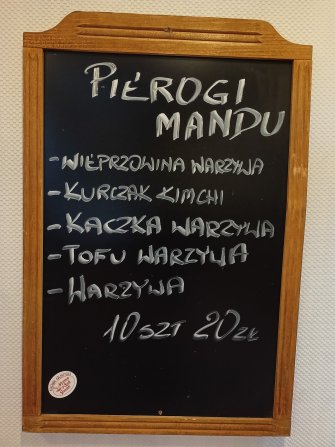 PIEROGI
MANDU
-WIEPRZOWINA WARZYWA
-KURCZAK KIMCHI
-KACZKA WARZYWA
-TOFU WARZYWA
-WARZYWA
10SZT 20ZŁ